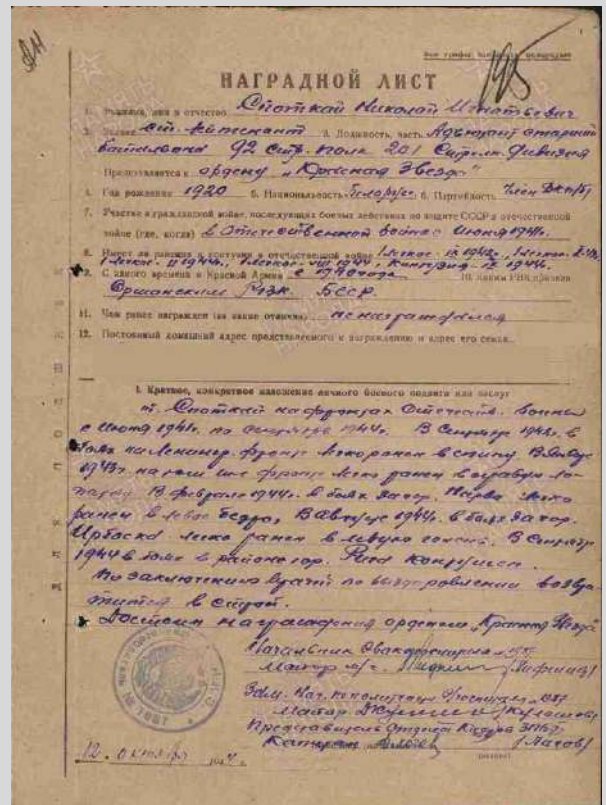 195
НАГРАДНОЙ ЛИСТ
1. Фамилия, имя и отчество Спиткай Николай Игнатьевич
2. Звание ст. лейтенант 3. Должность, часть Адъютант старший
батальона 92 стр. полк 201 Стрелк. Дивизия
Представляется к ордену „Красная Звезда"
4. Год рождения 1920 5. Национальность Белорус 6. Партийность Член ВКП(б)
7. Участие в гражданской войне, последующих боевых действиях по защите СССР и отечественной
войне (где, когда) в Отечественной войне с июня 1941г.
8. Имеет ли ранения и контузии в отечественной войне
9. С какого времени в Красной Армии с 1940 года 10. Каким РВК призван
Оршанским РВК. БССР.
11. Чем ранее награжден (за какие отличия) не награждался
12. Постоянный домашний адрес представляемого к награждению и адрес его семьи
I. Краткое, конкретное изложение личного боевого подвига или заслуг
на фронтах Отечеств. войны
с июня 1941г. по сентябрь 1944г. В Сентябре 1942г. в
боях на Ленингр. фронте легко ранен в спину. В Январе
1943г. на том же фронте легко ранен в правую ло-
патку. В феврале 1944г. в боях за гор. Нарва легко
ранен в левое бедро, В Августе 1944г. в боях за гор.
легко ранен в левую В Сентябре
1944 в боях в районе гор. Рига контужен.
По заключению врачей по выздоровлении возвра-
тится в строй.
Достоин награждения орденом „Красная Звезда"
Начальник Эвакогоспиталя
Майор м/с
Зам. Нач. Госпиталя
Майор
Представитель Отдела Кадров
Капитан
12 октября 194